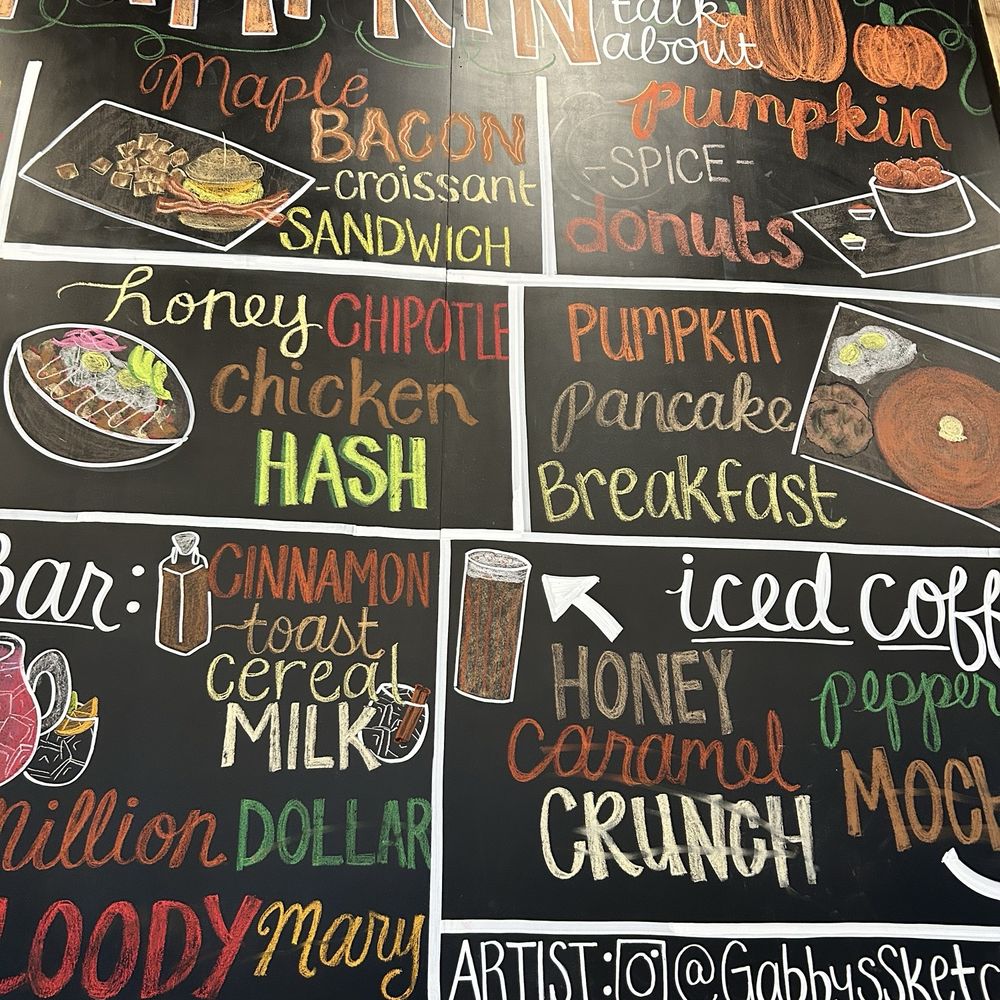 PUMPKIN
talk
about
Maple
BACON
-croissant
SANDWICH
pumpkin
-SPICE-
donuts
honey CHIPOTLE
chicken
HASH
PUMPKIN
Pancake
Breakfast
Bar:
CINNAMON
toast
cereal
MILK
million DOLLAR
LOODY Mary
iced Coff
HONEY
Caramel
CRUNCH
pepper
MOCH
ARTIST: @GabbysSketc